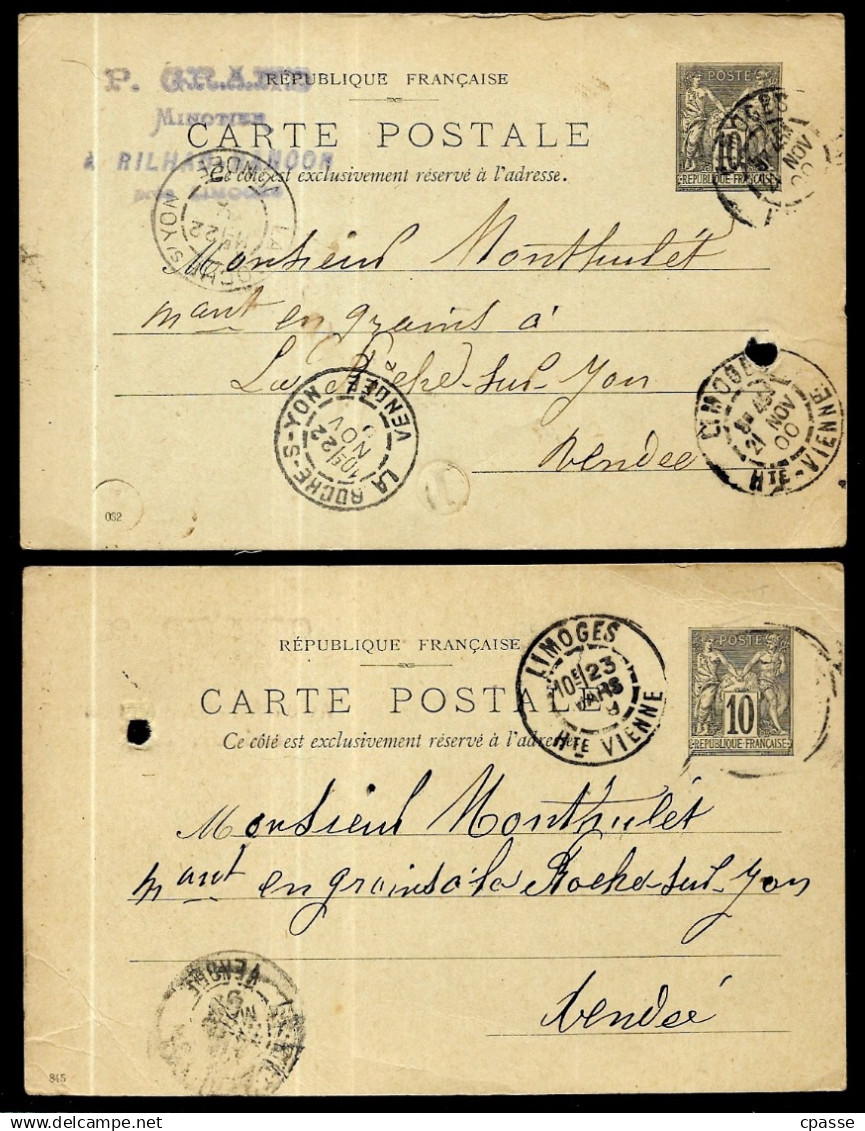 P. GRAND
MINOTIER
À RILHAC-RANCON
près LIMOGES
RÉPUBLIQUE FRANÇAISE
CARTE POSTALE
Ce côté est exclusivement réservé à l'adresse.
POSTES
10
REPUBLIQUE FRANÇAISE
LIMOGES
NOV
00
Monsieur Monthulét
mant en grains à
La Roche-sur-Yon
Vendée
LA ROCHE-S-YON
VENDÉE
10E 22
NOV
LIMOGES
21 NOV
00
HTE-VIENNE
032
RÉPUBLIQUE FRANÇAISE
CARTE POSTALE
Ce côté est exclusivement réservé à l'adresse.
POSTES
10
REPUBLIQUE FRANÇAISE
LIMOGES
10E 23
MARS
HTE VIENNE
Monsieur Monthulét
mant en grains à la Roche-sur-Yon
Vendée
VENDÉE
845
cpasse